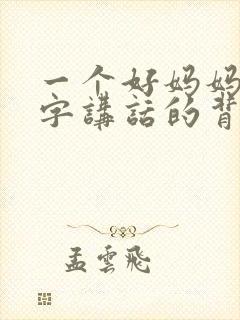 一个好妈妈
字講話的背
孟雲飛